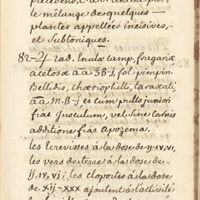 le mélange des quelques
plantes appellées incisives,
et subtoniques.
Rad. Enulæ Camp. fragariæ
acetosæ a.a ℥β-J, fol. pimpin.
Bellidis, chærephilli, taraxati,
a.a. M.β-J et cum pullo juniori
fiat jusculum, vel sine carnis
additione fiat apozema.
les Ecrevisses à la dose de ij-IV, VI,
les vers de terre à la dose de
ij, IV, VI; les cloportes à la dose
de Xij-XXX ajoutent à l'activité